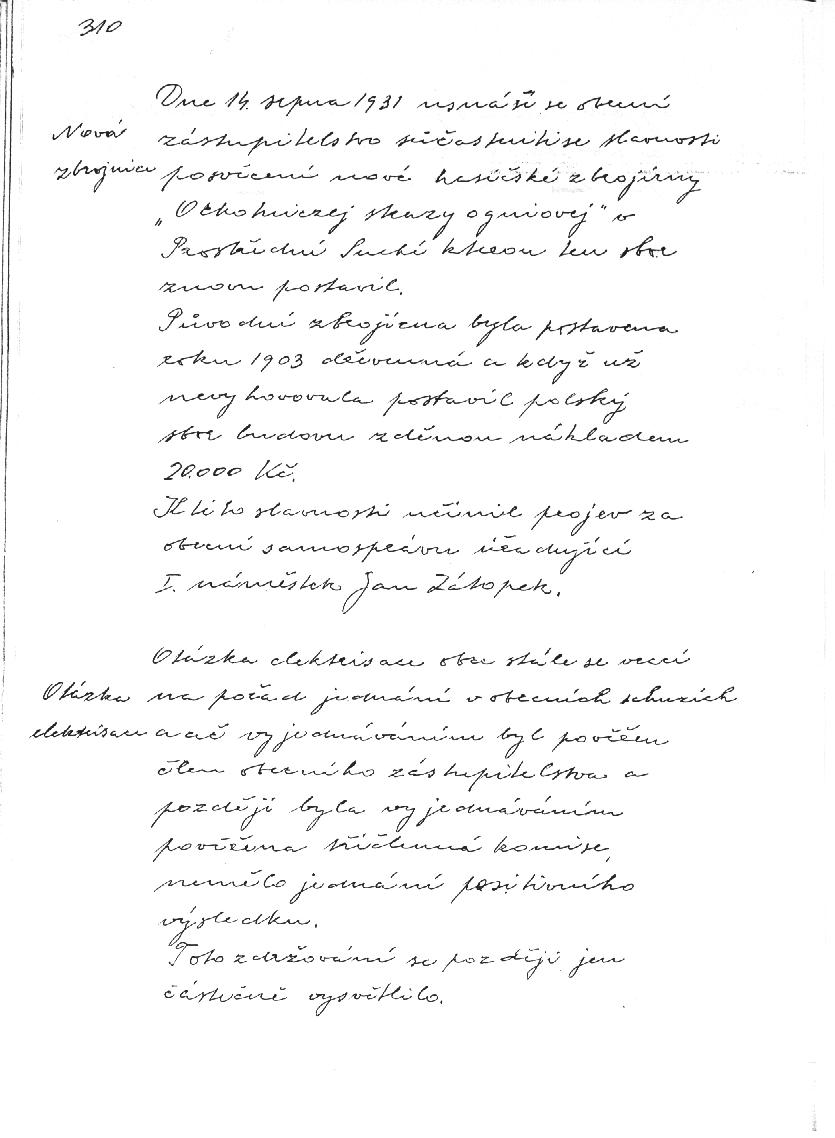 310
Dne 14. srpna 1931 usnáší se obecní
Nová zastupitelstvo súčastnitise slavnosti
zbrojnice posvěcení nové hasičské zbrojírny
„Ochotniczej strazy ogniovej" v
Prostřední Suché kterou ten sbor
znovu postavil.
Původní zbrojírna byla postavena
roku 1903 dřevenná a když už
nevyhovovala postavil polský
sbor budovu zděnou nákladem
20.000 Kč.
K této slavnosti učinil projev za
obecní samosprávu úřadující
I. náměstek Jan Zátopek.
Otázka elektrisace obce stále se vrací
Otázka na pořad jednání v obecních schuzích
elektrisace a ač vyjednáváním byl pověřen
člen obecního zástupitelstva a
později byla vyjednáváním
pověřena tříčlenná komise,
nemělo jednání positivního
výsledku.
Toto zdržování se později jen
částečně vysvětlilo.